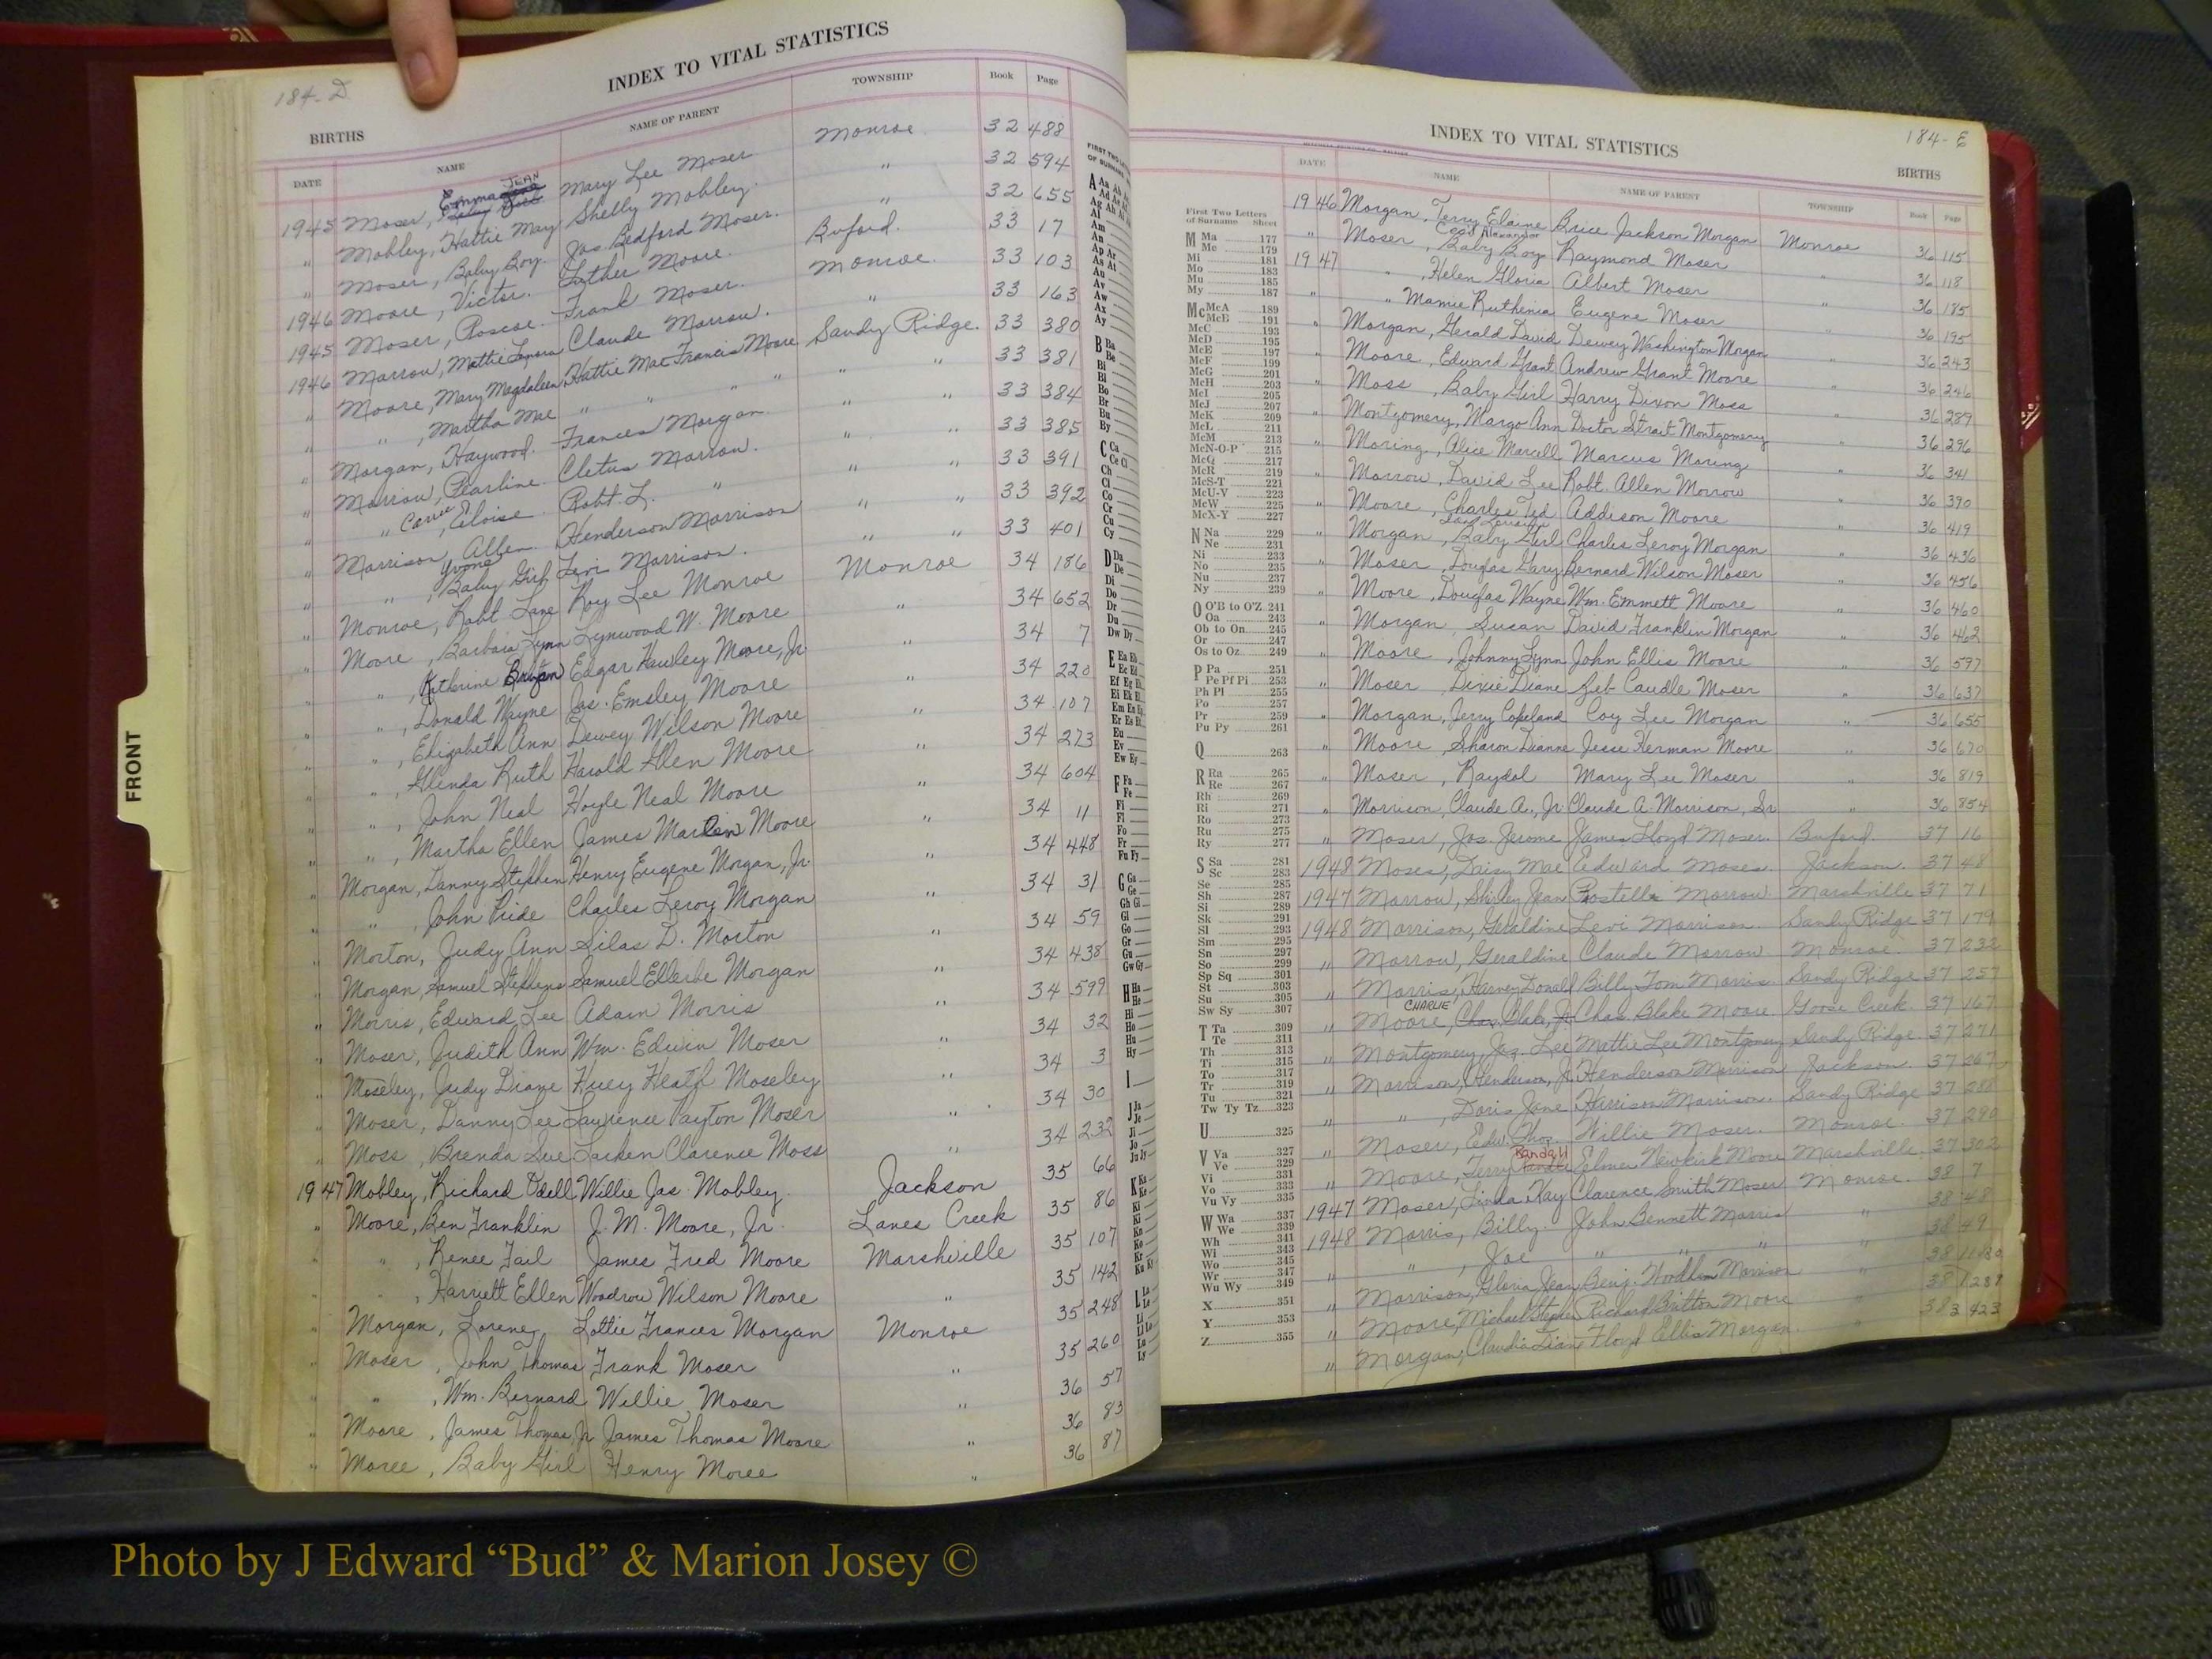 184-D
INDEX TO VITAL STATISTICS
BIRTHS
DATE NAME NAME OF PARENT TOWNSHIP Book Page
JEAN
1945 Moser, Emma Mary Lee Moser Monroe 32 488
" Mobley, Hattie May Shelly Mobley " 32 594
" Moser, Baby Boy Jas. Bedford Moser " 32 655
1946 Moore, Victor Luther Moore Buford 33 17
1945 Moser, Roscoe Frank Moser Monroe 33 103
1946 Morrow, Mattie Claude Morrow " 33 163
" Moore, Mary Magdaleen Hattie Mae Francis Moore Sandy Ridge 33 380
" " , Martha Mae " " " " " " 33 381
" Morgan, Haywood Frances Morgan " " 33 384
" Morrow, Pearline Cletus Morrow " " 33 385
" " Carrie, Eloise Robt L. " " " 33 391
" Morrison, Allen Henderson Morrison " " 33 392
Yvone
" " , Baby Girl Levi Morrison " " 33 401
" Monroe, Robt Lane Roy Lee Monroe Monroe 34 186
" Moore, Barbara Lynn Lynwood W. Moore " 34 652
" " , Katherine Edgar Hawley Moore, Jr. " 34 7
" " , Donald Wayne Jas. Emsley Moore " 34 220
" " , Elizabeth Ann Dewey Wilson Moore " 34 107
" " , Glenda Ruth Harold Glen Moore " 34 273
" " , John Neal Hoyle Neal Moore " 34 604
" " , Martha Ellen James Moore " 34 11
" Morgan, Danny Stephen Henry Eugene Morgan, Jr. " 34 448
" " , John Pride Charles Leroy Morgan " 34 31
" Morton, Judy Ann Silas D. Morton " 34 59
" Morgan, Samuel Stephens Samuel Ellerbe Morgan " 34 438
" Morris, Edward Lee Adam Morris " 34 599
" Moser, Judith Ann Wm. Edwin Moser " 34 32
" Moseley, Judy Diane Huey Heath Moseley " 34 3
" Moser, Danny Lee Laurence Payton Moser " 34 30
" Moss, Brenda Sue Larken Clarence Moss " 34 232
1947 Mobley, Richard Odell Willie Jas. Mobley Jackson 35 66
" Moore, Ben Franklin J. M. Moore, Jr. Lanes Creek 35 86
" " , Renee Fail James Fred Moore Marshville 35 107
" " , Harriett Ellen Woodrow Wilson Moore " 35 142
" Morgan, Lorene Lottie Frances Morgan Monroe 35 248
" Moser, John Thomas Frank Moser " 35 260
" " , Wm. Bernard Willie Moser " 36 57
" Moore, James Thomas, Jr. James Thomas Moore " 36 83
" Moree, Baby Girl Henry Moree " 36 87
FRONT
FIRST TWO
OF SURNAME
A
B Ba
Be
Bi
Bl
Bo
Br
Bu
By
C Ca
Ce Ci
Ch
Cl
Co
Cr
Cu
Cy
D Da
De
Di
Do
Dr
Du
Dw Dy
INDEX TO VITAL STATISTICS
184-E
BIRTHS
DATE NAME NAME OF PARENT TOWNSHIP Book Page
First Two Letters
of Surname Sheet
M Ma 177
Me 179
Mi 181
Mo 183
Mu 185
My 187
Mc McA 189
McB 191
McC 193
McD 195
McE 197
McF 199
McG 201
McH 203
McI 205
McJ 207
McK 209
McL 211
McM 213
McN-O-P 215
McQ 217
McR 219
McS-T 221
McU-V 223
McW 225
McX-Y 227
N Na 229
Ne 231
Ni 233
No 235
Nu 237
Ny 239
O O'B to O'Z 241
Oa 243
Ob to On 245
Or 247
Os to Oz 249
P Pa 251
Pe Pf Pi 253
Ph Pl 255
Po 257
Pr 259
Pu Py 261
Q 263
R Ra 265
Re 267
Rh 269
Ri 271
Ro 273
Ru 275
Ry 277
S Sa 281
Sc 283
Se 285
Sh 287
Si 289
Sk 291
Sl 293
Sm 295
Sn 297
So 299
Sp Sq 301
St 303
Su 305
Sw Sy 307
T Ta 309
Te 311
Th 313
Ti 315
To 317
Tr 319
Tu 321
Tw Ty Tz 323
U 325
V Va 327
Ve 329
Vi 331
Vo 333
Vu Vy 335
W Wa 337
We 339
Wh 341
Wi 343
Wo 345
Wr 347
Wu Wy 349
X 351
Y 353
Z 355
1946 Morgan, Terry Elaine Brice Jackson Morgan Monroe 36 115
" Moser, Baby Boy Raymond Moser " 36 118
1947 " , Helen Gloria Albert Moser " 36 185
" " Mamie Ruthenia Eugene Moser " 36 195
" Morgan, Gerald David Dewey Washington Morgan " 36 243
" Moore, Edward Grant Andrew Grant Moore " 36 246
" Moss, Baby Girl Harry Dixon Moss " 36 289
" Montgomery, Margo Ann Doctor Strait Montgomery " 36 296
" Moring, Alice Marcell Marcus Moring " 36 341
" Morrow, David Lee Robt. Allen Morrow " 36 390
" Moore, Charles Ted Addison Moore " 36 419
" Morgan, Baby Girl Charles Leroy Morgan " 36 436
" Moser, Douglas Gary Bernard Wilson Moser " 36 456
" Moore, Douglas Wayne Wm. Emmett Moore " 36 460
" Morgan, Susan David Franklin Morgan " 36 462
" Moore, Johnny Lynn John Ellis Moore " 36 597
" Moser, Dixie Diane Zeb Caudle Moser " 36 637
" Morgan, Jerry Copeland Coy Lee Morgan " 36 655
" Moore, Sharon Dianne Jesse Herman Moore " 36 670
" Moser, Raydol Mary Lee Moser " 36 819
" Morrison, Claude A., Jr. Claude A. Morrison, Sr " 36 854
" Moser, Jos. Jerome James Lloyd Moser Buford 37 16
1948 Moses, Daisy Mae Eedward Moses Jackson 37 48
1947 Morrow, Shirley Jean Rostella Morrow Marshville 37 71
1948 Morrison, Geraldine Levi Morrison Sandy Ridge 37 179
" Morrow, Geraldine Claude Morrow Monroe 37 232
" Morris, Harvey Donald Billy Tom Morris Sandy Ridge 37 257
CHARLIE
" Moore, Chas. Blake, Jr. Chas. Blake Moore Goose Creek 37 167
" Montgomery, Jas. Lee Mattie Lee Montgomery Sandy Ridge 37 271
" Morrison, Henderson, Jr. Henderson Morrison Jackson 37 267
" " , Doris Jane Harrison Morrison Sandy Ridge 37 288
" Moser, Edw. Thos. Willie Moser Monroe 37 290
Randall
" Moore, Terry Elmer Newkirk Moore Marshville 37 302
1947 Moser, Linda Kay Clarence Smith Moser Monroe 38 7
1948 Morris, Billy John Bennett Morris " 38 48
" " , Joe " " " " 38 49
" Morrison, Gloria Jean Benj. Woodham Morrison "
" Moore, Michael Stephen Richard Britton Moore "
" Morgan, Claudia Diane Floyd Ellis Morgan "
Photo by J Edward “Bud” & Marion Josey ©